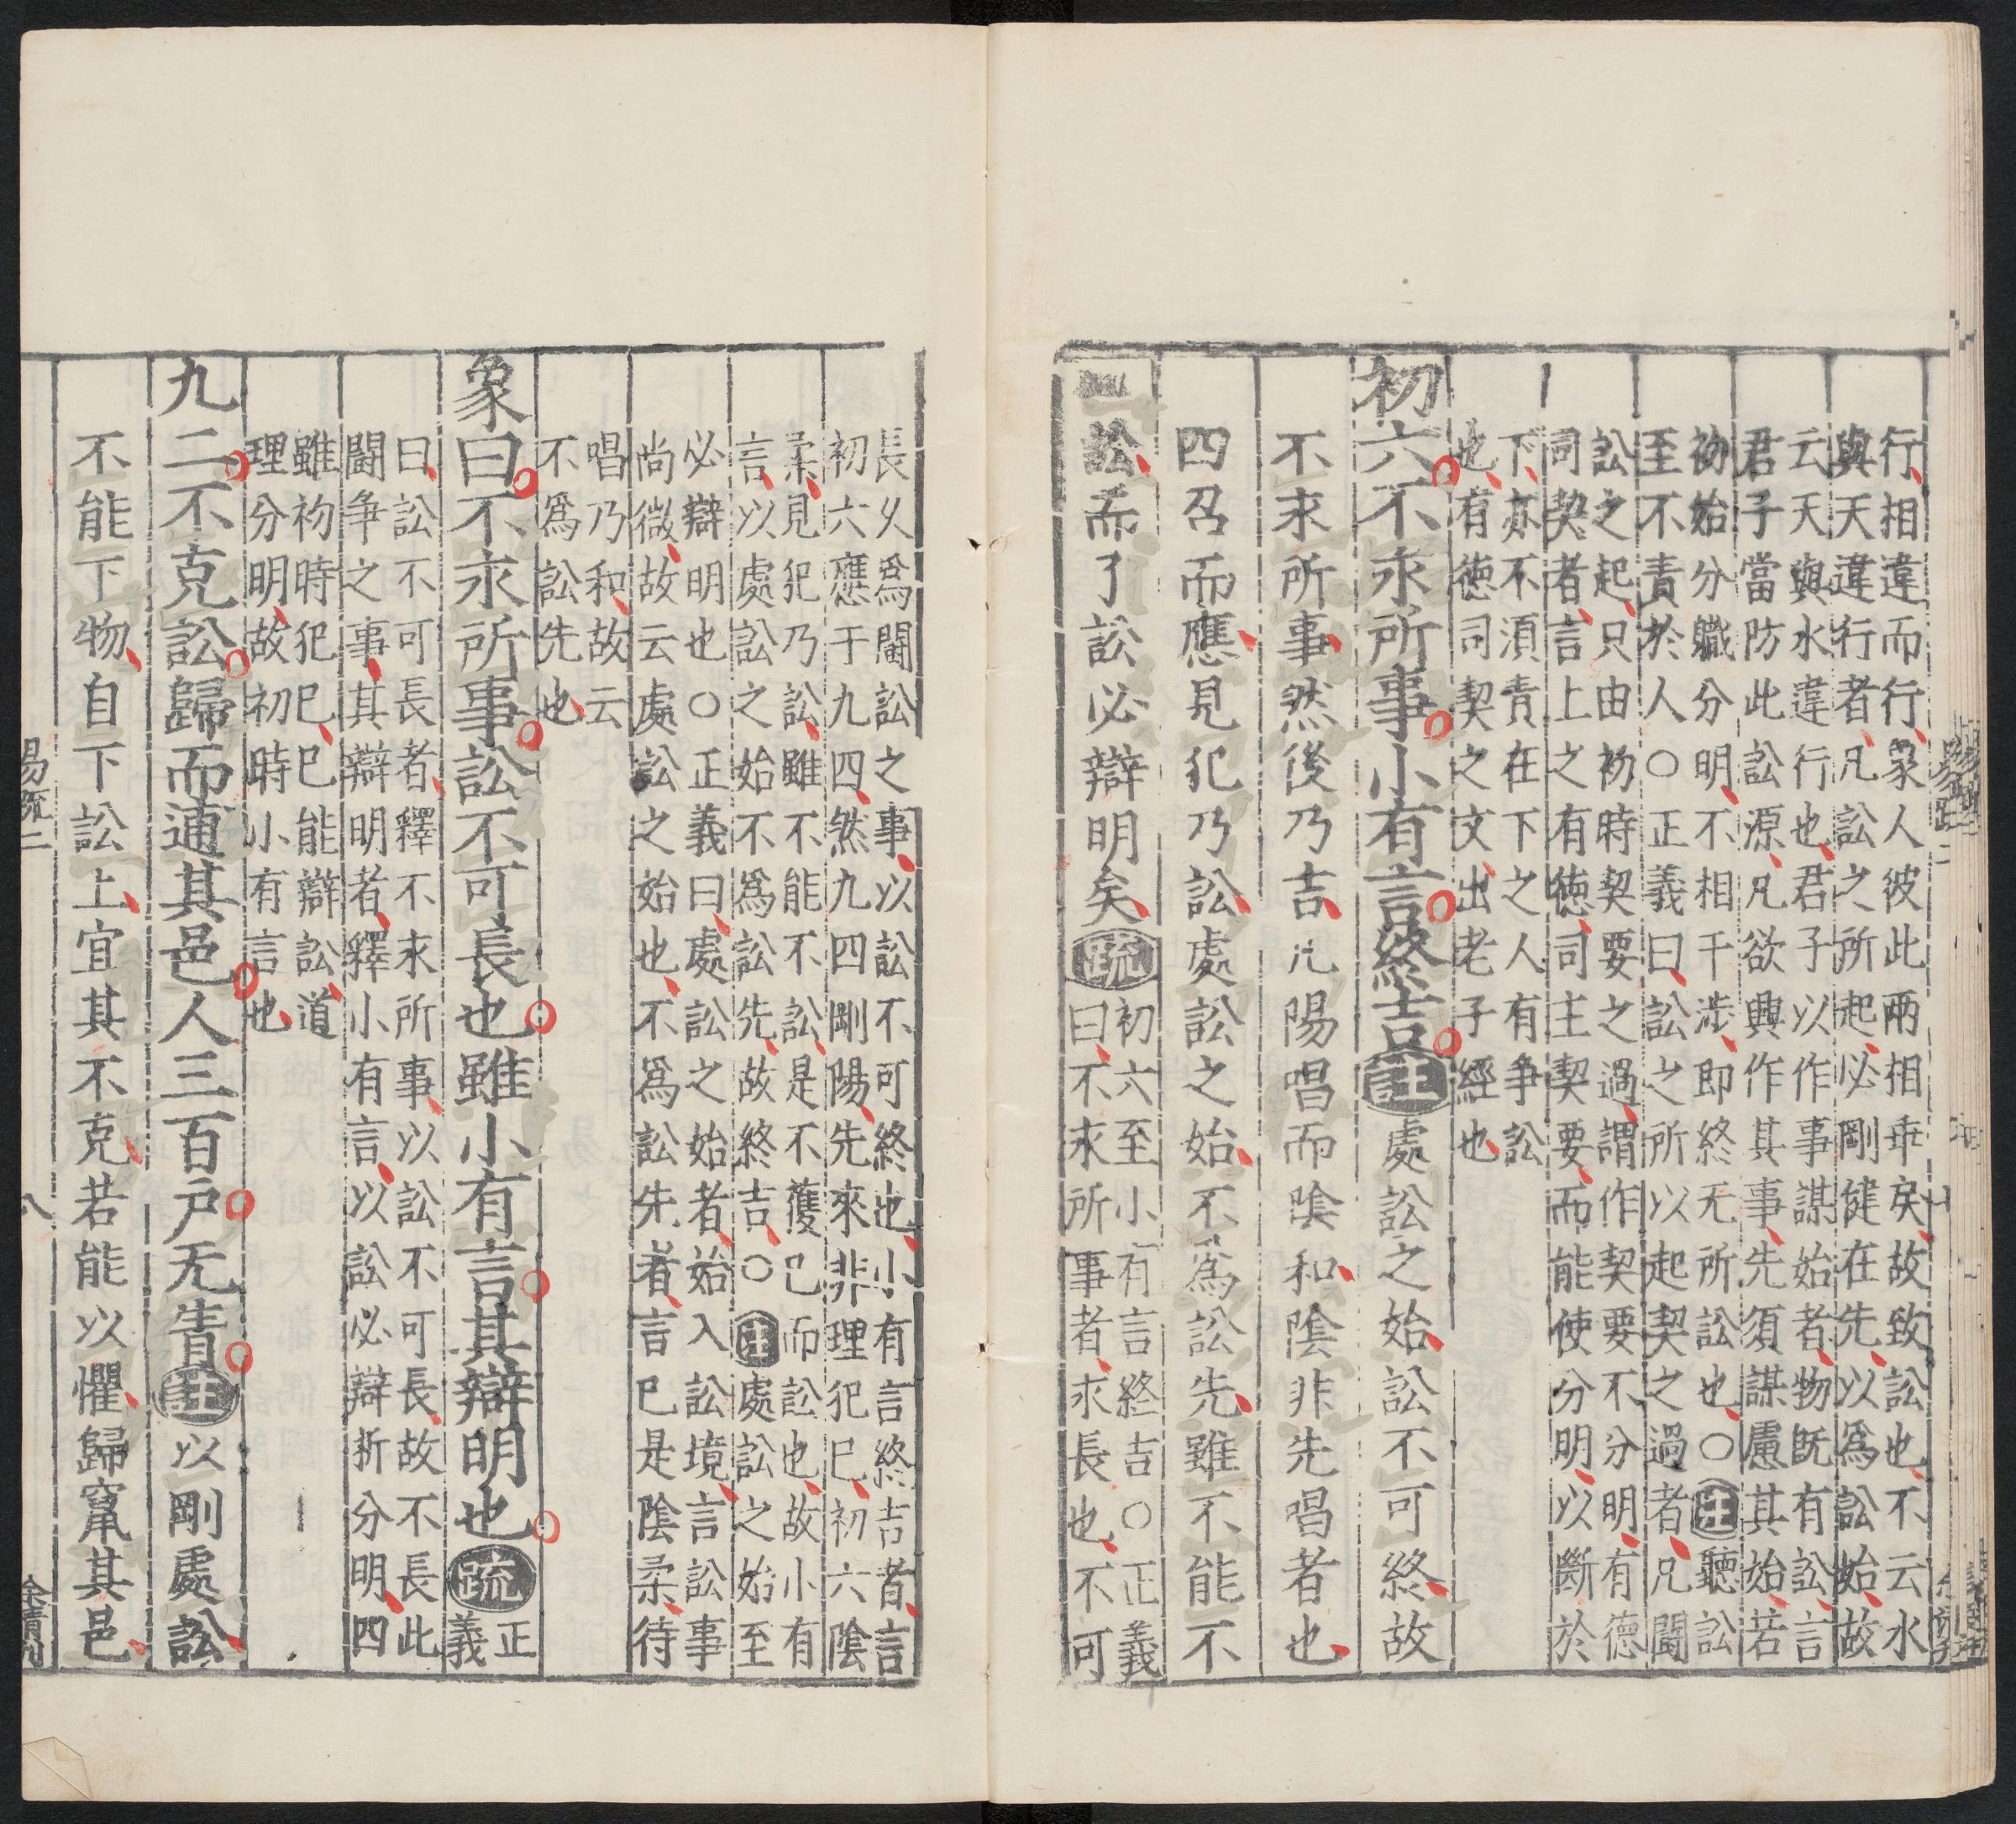 行相違而行象人彼此兩相乖戾故致訟也不云水
與天違行者凡訟之所起必剛健在先以爲訟始故
云天與水違行也君子以作事謀始者物既有訟言
君子當防此訟源凡欲興作其事先須謀慮其始若
初始分軄分明不相干渉即終无所訟也○注聽訟
至不責於人○正義曰訟之所以起契之過者凡鬭
訟之起只由初時契要之過謂作契要不分明有德
司契者言上之有徳司主契要而能使分明以斷於
下亦不湏責在下之人有爭訟
也有徳司契之文出老子經也
初六不永所事小有言終吉注處訟之始訟不可終故
不永所事然後乃吉凡陽唱而陰和陰非先唱者也
四召而應見犯乃訟處訟之始不爲訟先雖不能不
訟而了訟必辯明矣疏
初六至小有言終吉○正義
曰不永所事者永長也不可
長乆爲鬭訟之事以訟不可終也小有言終吉者言
初六應于九四然九四剛陽先來非理犯巳初六陰
柔見犯乃訟雖不能不訟是不獲巳而訟也故小有
言以處訟之始不爲訟先故終吉○注處訟之始至
必辯明也○正義曰處訟之始者始入訟境言訟事
尚微故云處訟之始也不爲訟先者言巳是陰柔待
唱乃和故云
不爲訟先也
象曰不永所事訟不可長也雖小有言其辯明也疏
正
義
曰訟不可長者釋不永所事以訟不可長故不長此
鬭爭之事其辯明者釋小有言以訟必辯析分明四
雖初時犯巳巳能辯訟道
理分明故初時小有言也
九二不克訟歸而逋其邑人三百戶无眚注以剛處訟
不能下物自下訟上宜其不克若能以懼歸竄其邑
易疏二
八
余清刊